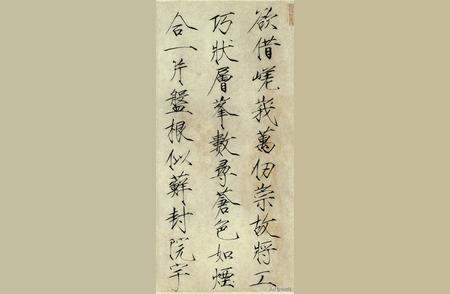 欲借嵯峨萬仞崇故將工
巧狀層峯數尋蒼色如煙
合一片盤根似蘚封院宇